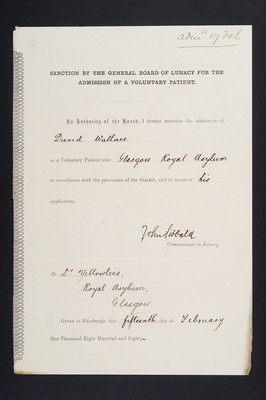 adm^d 17 Feb
SANCTION BY THE GENERAL BOARD OF LUNACY FOR THE
ADMISSION OF A VOLUNTARY PATIENT.
By Authority of the Board, I hereby sanction the admission of
David Wallace
as a Voluntary Patient into Glasgow Royal Asylum
in accordance with the provisions of the Statute, and in terms of his
application.
John Sibbald
Commissioner in Lunacy.
To Dr Yellowlees,
Royal Asylum,
Glasgow.
Given at Edinburgh, this fifteenth day of February
One Thousand Eight Hundred and Eighty.